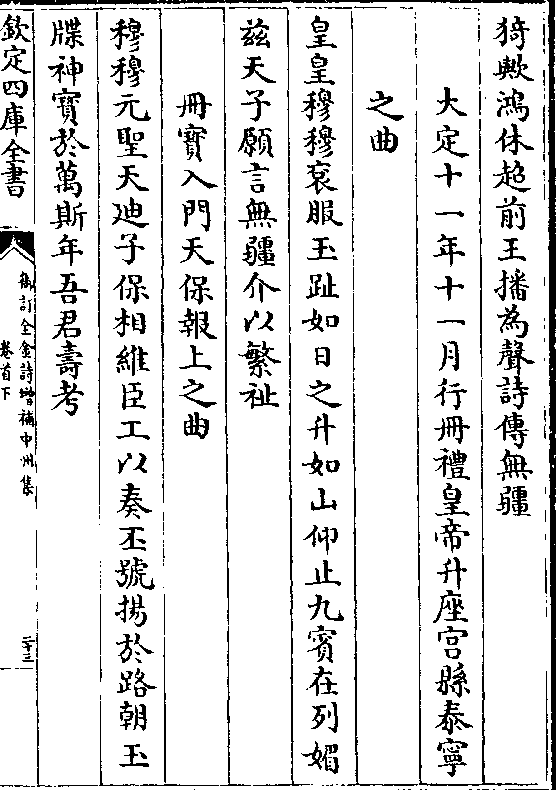 猗歟鴻休超前王播為聲詩傳無疆
大定十一年十一月行冊禮皇帝升座宫縣泰寧
之曲
皇皇穆穆衮服玉趾如日之升如山仰止九賓在列媚
兹天子願言無疆介以繁祉
冊寶入門天保報上之曲
穆穆元聖天廸子保相維臣工以奏丕號揚於路朝玉
牒神寶於萬斯年吾君壽考
欽定四庫全書
御訂全金詩增補中州集
卷首下
二十三